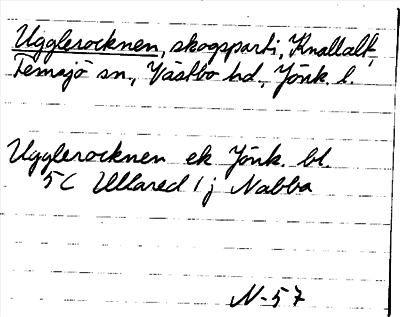 Ugglerocknen, skogsparti, Knallalt,
Femsjö sn., Västbo hd, Jönk. l.
Ugglerocknen ek Jönk. bl.
5C Ullared 1j Nabba
N-57